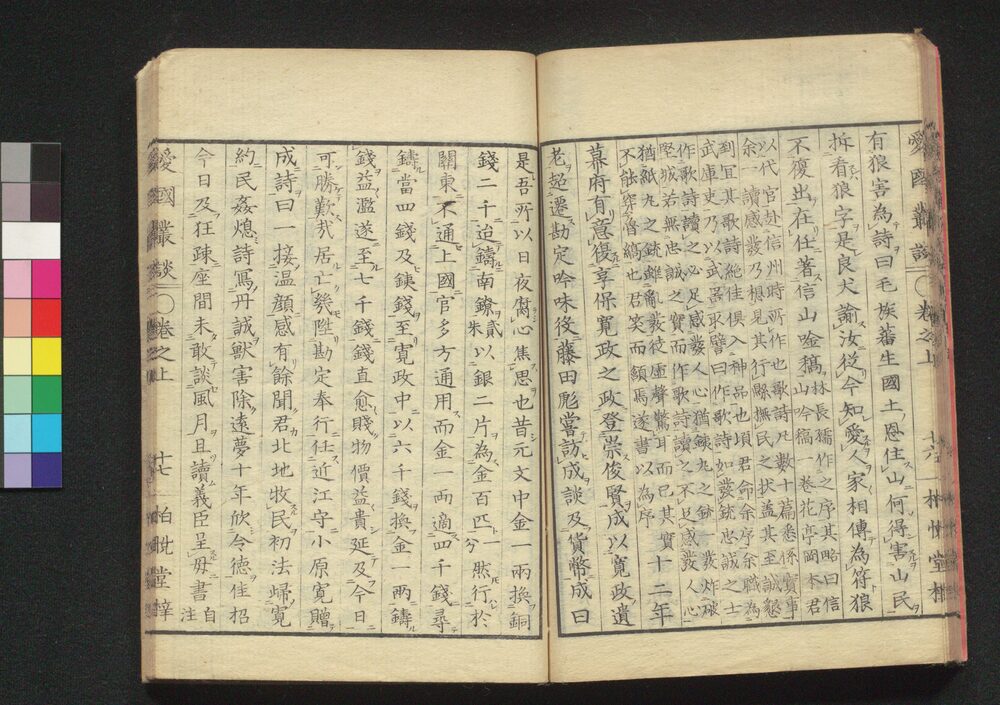 愛國叢談 卷之上 十六 柏悅堂梓
有狼害為詩曰毛族蕃生國土恩住山何得害山民
拆看狼字是良犬諭汝從今知愛人家相傳為符狼
不復出在任著信山唫稿林長孺作之序其略曰信山吟稿一卷花亭岡本君
以代官赴信州時所作也歌詩凡數十篇悉係實事
余一讀感發乃想見其行縣撫民之狀蓋其至誠懇
到宜其歌詩絶佳俱入神品也頃君命余序余職為
武庫吏乃以武器取譬曰作歌詩如發銃忠誠之士
作歌詩讀之必足感發人心猶鐵丸之銃一發炸破
堅城若無忠誠之實而作歌詩讀之不足感發人心
猶紙丸之銃雖亂發徒虛聲驚耳而已其實
不能穿魯縞也君笑而頷焉遂書以為序十二年
幕府有意復享保寬政之政登崇俊賢成以寬政遺
老超遷勘定吟味役藤田彪嘗訪成談及貨幣成曰
是吾所以日夜腐心焦思也昔元文中金一兩換銅
錢二千迨鑄南鐐貳朱以銀二片為金百匹一分然行於
關東不通上國官多方通用而金一兩適四千錢尋
鑄當四錢及銕錢至寬政中以六千錢換金一兩鑄
錢益濫遂至七千錢錢直愈賤物價益貴延及今日
可勝歎哉居亡幾陞勘定奉行任近江守小原寬贈
成詩曰一接溫顏感有餘聞君北地牧民初法歸寬
約民姦熄詩寫丹誠獸害除遠夢十年欣令德佳招
今日及狂疎座間未敢談風月且讀義臣呈毋書自注
愛國叢談 卷之上 十七 柏悅堂梓